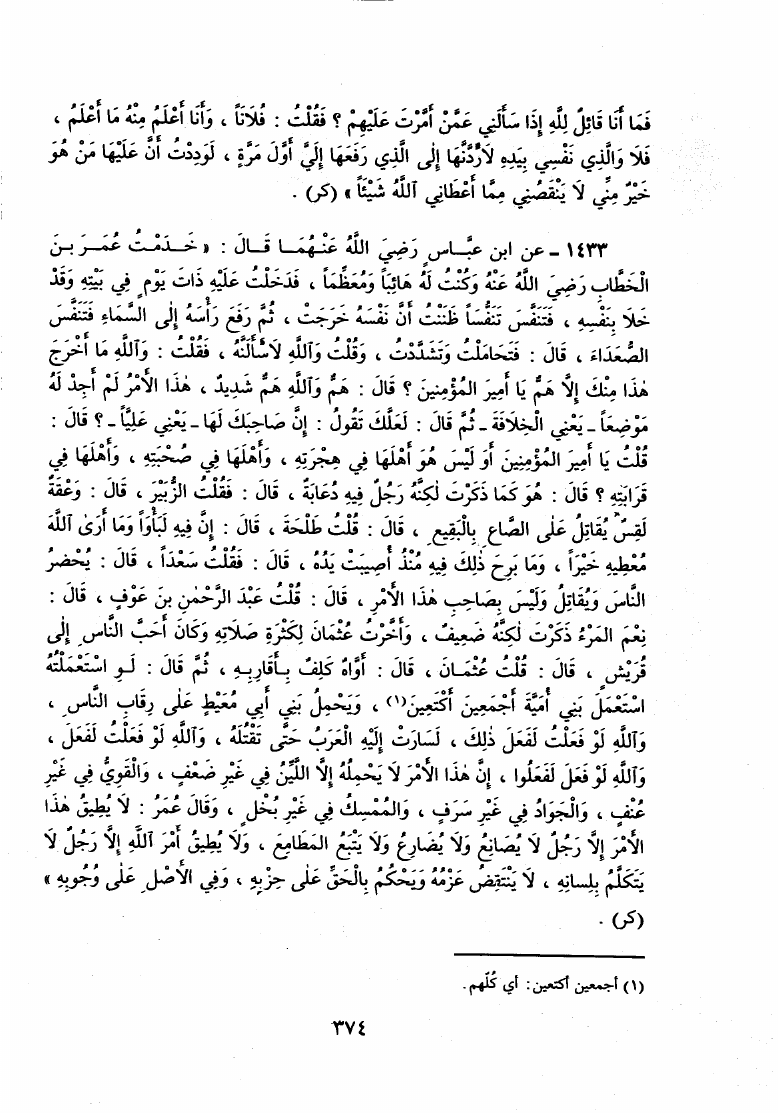 فَمَا أَنَا قَائِلٌ لِلَّهِ إِذَا سَأَلَنِي عَمَّنْ أَمَّرْتَ عَلَيْهِمْ ؟ فَقُلْتُ : فُلَانَاً ، وَأَنَا أَعْلَمُ مِنْهُ مَا أَعْلَمُ ،
فَلَا وَالَّذِي نَفْسِي بِيَدِهِ لَأَرُدَّنَّهَا إِلَى الَّذِي رَفَعَهَا إِلَيَّ أَوَّلَ مَرَّةٍ ، لَوَدِدْتُ أَنَّ عَلَيْهَا مَنْ هُوَ
خَيْرٌ مِنِّي لَا يَنْقُصُنِي مِمَّا أَعْطَانِي اللَّهُ شَيْئَاً » (كر) .
١٤٣٣ - عن ابن عبَّاسٍ رَضِيَ اللَّهُ عَنْهُمَا قَالَ : « خَدَمْتُ عُمَرَ بنَ
الْخَطَّابِ رَضِيَ اللَّهُ عَنْهُ وَكُنْتُ لَهُ هَائِبَاً وَمُعَظِّمَاً ، فَدَخَلْتُ عَلَيْهِ ذَاتَ يَوْمٍ فِي بَيْتِهِ وَقَدْ
خَلَا بِنَفْسِهِ ، فَتَنَفَّسَ تَنَفُّسَاً ظَنَنْتُ أَنَّ نَفْسَهُ خَرَجَتْ ، ثُمَّ رَفَعَ رَأْسَهُ إِلَى السَّمَاءِ فَتَنَفَّسَ
الصُّعَدَاءَ ، قَالَ : فَتَحَامَلْتُ وَتَشَدَّدْتُ ، وَقُلْتُ وَاللَّهِ لَأَسْأَلَنَّهُ ، فَقُلْتُ : وَاللَّهِ مَا أَخْرَجَ
هٰذَا مِنْكَ إِلَّا هَمٌّ يَا أَمِيرَ المُؤْمِنِينَ ؟ قَالَ : هَمٌّ وَاللَّهِ هَمٌّ شَدِيدٌ ، هٰذَا الأَمْرُ لَمْ أَجِدْ لَهُ
مَوْضِعَاً - يَعْنِي الْخِلَافَةَ - ثُمَّ قَالَ : لَعَلَّكَ تَقُولُ : إِنَّ صَاحِبَكَ لَهَا - يَعْنِي عَلِيَّاً - ؟ قَالَ :
قُلْتُ يَا أَمِيرَ المُؤْمِنِينَ أَوَ لَيْسَ هُوَ أَهْلَهَا فِي هِجْرَتِهِ ، وَأَهْلَهَا فِي صُحْبَتِهِ ، وَأَهْلَهَا فِي
قَرَابَتِهِ ؟ قَالَ : هُوَ كَمَا ذَكَرْتَ لٰكِنَّهُ رَجُلٌ فِيهِ دُعَابَةٌ ، قَالَ : فَقُلْتُ الزُّبَيْرَ ، قَالَ : وَعْقَةٌ
لَقِسٌ يُقَاتِلُ عَلَى الصَّاعِ بِالْبَقِيعِ ، قَالَ : قُلْتُ طَلْحَةَ ، قَالَ : إِنَّ فِيهِ لَبَأْوَاً وَمَا أَرَىٰ اللَّهَ
مُعْطِيهِ خَيْرَاً ، وَمَا بَرِحَ ذٰلِكَ فِيهِ مُنْذُ أُصِيبَتْ يَدُهُ ، قَالَ : فَقُلْتُ سَعْدَاً ، قَالَ : يُحْضِرُ
النَّاسَ وَيُقَاتِلُ وَلَيْسَ بِصَاحِبِ هٰذَا الأَمْرِ ، قَالَ : قُلْتُ عَبْدَ الرَّحْمٰنِ بنَ عَوْفٍ ، قَالَ :
نِعْمَ المَرْءُ ذَكَرْتَ لٰكِنَّهُ ضَعِيفٌ ، وَأَخَّرْتُ عُثْمَانَ لِكَثْرَةِ صَلَاتِهِ وَكَانَ أَحَبَّ النَّاسِ إِلَى
قُرَيْشٍ ، قَالَ : قُلْتُ عُثْمَانَ ، قَالَ : أَوَّاهٌ كَلِفٌ بِأَقَارِبِهِ ، ثُمَّ قَالَ : لَوِ اسْتَعْمَلْتُهُ
اسْتَعْمَلَ بَنِي أُمَيَّةَ أَجْمَعِينَ أَكْتَعِينَ(١) ، وَيَحْمِلُ بَنِي أَبِي مُعَيْطٍ عَلَى رِقَابِ النَّاسِ ،
وَاللَّهِ لَوْ فَعَلْتُ لَفَعَلَ ذٰلِكَ ، لَسَارَتْ إِلَيْهِ الْعَرَبُ حَتَّى تَقْتُلَهُ ، وَاللَّهِ لَوْ فَعَلْتُ لَفَعَلَ ،
وَاللَّهِ لَوْ فَعَلَ لَفَعَلُوا ، إِنَّ هٰذَا الأَمْرَ لَا يَحْمِلُهُ إِلَّا اللَّيِّنُ فِي غَيْرِ ضَعْفٍ ، وَالْقَوِيُّ فِي غَيْرِ
عُنْفٍ ، وَالْجَوَادُ فِي غَيْرِ سَرَفٍ ، وَالمُمْسِكُ فِي غَيْرِ بُخْلٍ ، وَقَالَ عُمَرُ : لَا يُطِيقُ هٰذَا
الأَمْرَ إِلَّا رَجُلٌ لَا يُصَانِعُ وَلَا يُضَارِعُ وَلَا يَتْبَعُ المَطَامِعَ ، وَلَا يُطِيقُ أَمْرَ اللَّهِ إِلَّا رَجُلٌ لَا
يَتَكَلَّمُ بِلِسَانِهِ ، لَا يَنْتَقِضُ عَزْمُهُ وَيَحْكُمُ بِالْحَقِّ عَلَى حِزْبِهِ ، وَفِي الأَصْلِ عَلَى وُجُوبِهِ »
(كر) .
(١) أجمعين أكتعين : أي كُلّهم .
٣٧٤